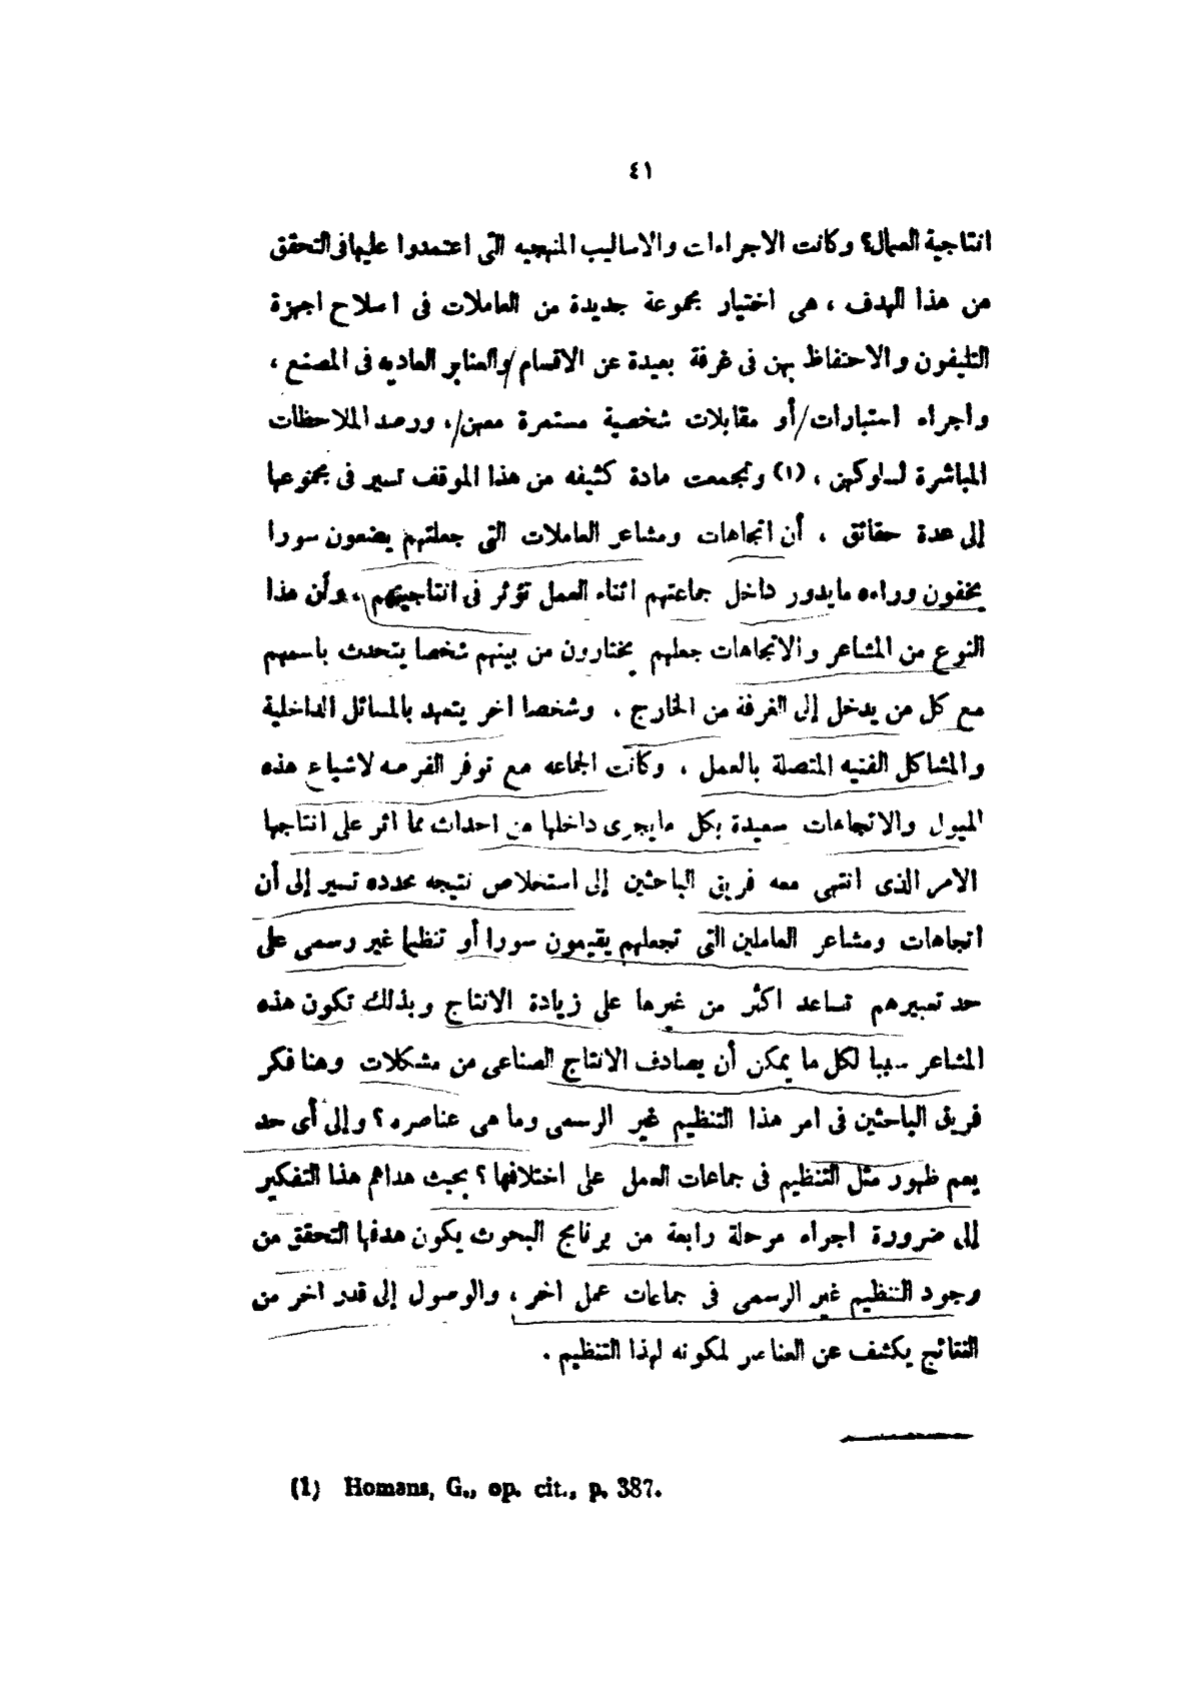 ٤١
انتاجية العمال؟ وكانت الاجراءات والاساليب المنهجيه التى اعتمدوا عليها فى التحقق
من هذا الهدف ، هى اختيار مجموعة جديدة من العاملات فى اصلاح اجهزة
التليفون والاحتفاظ بهن فى غرفة بعيدة عن الاقسام/والعنابر العاديه فى المصنع ،
واجراء اختبارات/أو مقابلات شخصية مستمرة معهن/، ورصد الملاحظات
المباشرة لسلوكهن ، (١) وتجمعت مادة كثيفه من هذا الموقف تسير فى مجموعها
إلى عدة حقائق ، أن اتجاهات ومشاعر العاملات التى جعلتهم يضعون سورا
يخفون وراءه مايدور داخل جماعتهم اثناء العمل تؤثر فى انتاجيتهم ، وأن هذا
النوع من المشاعر والاتجاهات جعلهم يختارون من بينهم شخصا يتحدث باسمهم
مع كل من يدخل إلى الغرفة من الخارج ، وشخصا اخر يتعهد بالمسائل الداخلية
والمشاكل الفنيه المتصلة بالعمل ، وكانت الجماعه مع توفر الفرصه لاشباع هذه
الميول والاتجاهات سعيدة بكل مايجرى داخلها من احداث مما اثر على انتاجها
الامر الذى انتهى معه فريق الباحثين إلى استخلاص نتيجه محدده تسير إلى أن
اتجاهات ومشاعر العاملين التى تجعلهم يقيمون سورا أو تنظيما غير رسمى على
حد تعبيرهم تساعد اكثر من غيرها على زيادة الانتاج وبذلك تكون هذه
المشاعر سببا لكل ما يمكن أن يصادف الانتاج الصناعى من مشكلات وهنا فكر
فريق الباحثين فى امر هذا التنظيم غير الرسمى وما هى عناصره ؟ وإلى أى حد
يعم ظهور مثل التنظيم فى جماعات العمل على اختلافها ؟ بحيث هداهم هذا التفكير
إلى ضرورة اجراء مرحلة رابعة من برنامج البحوث يكون هدفها التحقق من
وجود التنظيم غير الرسمى فى جماعات عمل اخر ، والوصول إلى قدر اخر من
النتائج يكشف عن العناصر لمكونه لهذا التنظيم .
(1) Homans, G., op. cit., p. 387.